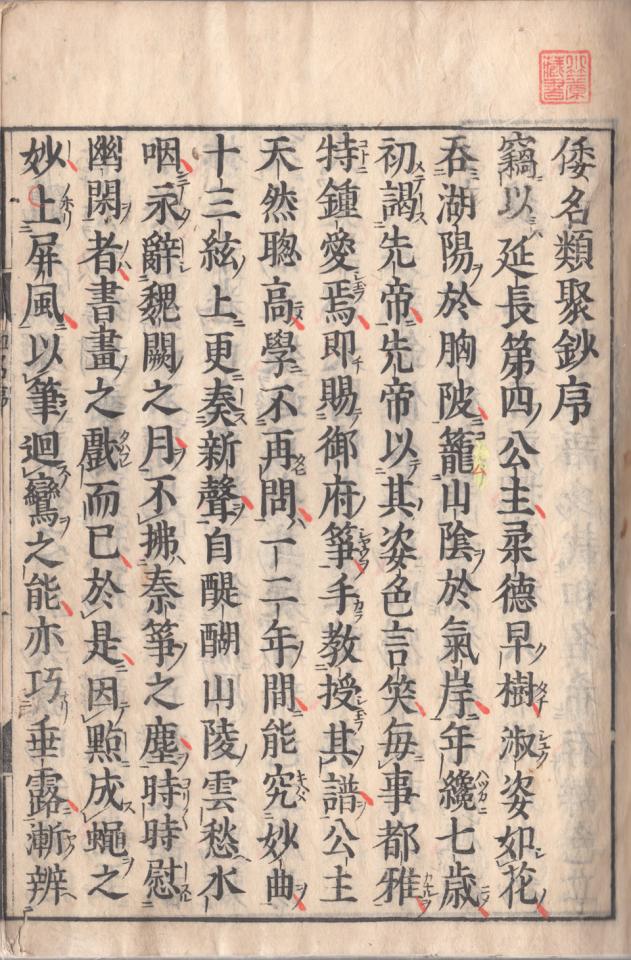 倭名類聚鈔序
竊以延長第四公主柔德早樹淑姿如花
呑湖陽於胸陂籠山陰於氣岸年纔七歳
初謁先帝先帝以其姿色言笑毎事都雅
特鍾愛焉即賜御府箏手教授其譜公主
天然聰高學不再問一二年間能究妙曲
十三絃上更奏新聲自醍醐山陵雲愁水
咽永辭魏闕之月不拂秦箏之塵時時慰
幽閑者書畫之戲而已於是因㸃成蠅之
妙上屏風以筆迴鸞之能亦巧垂露漸辨